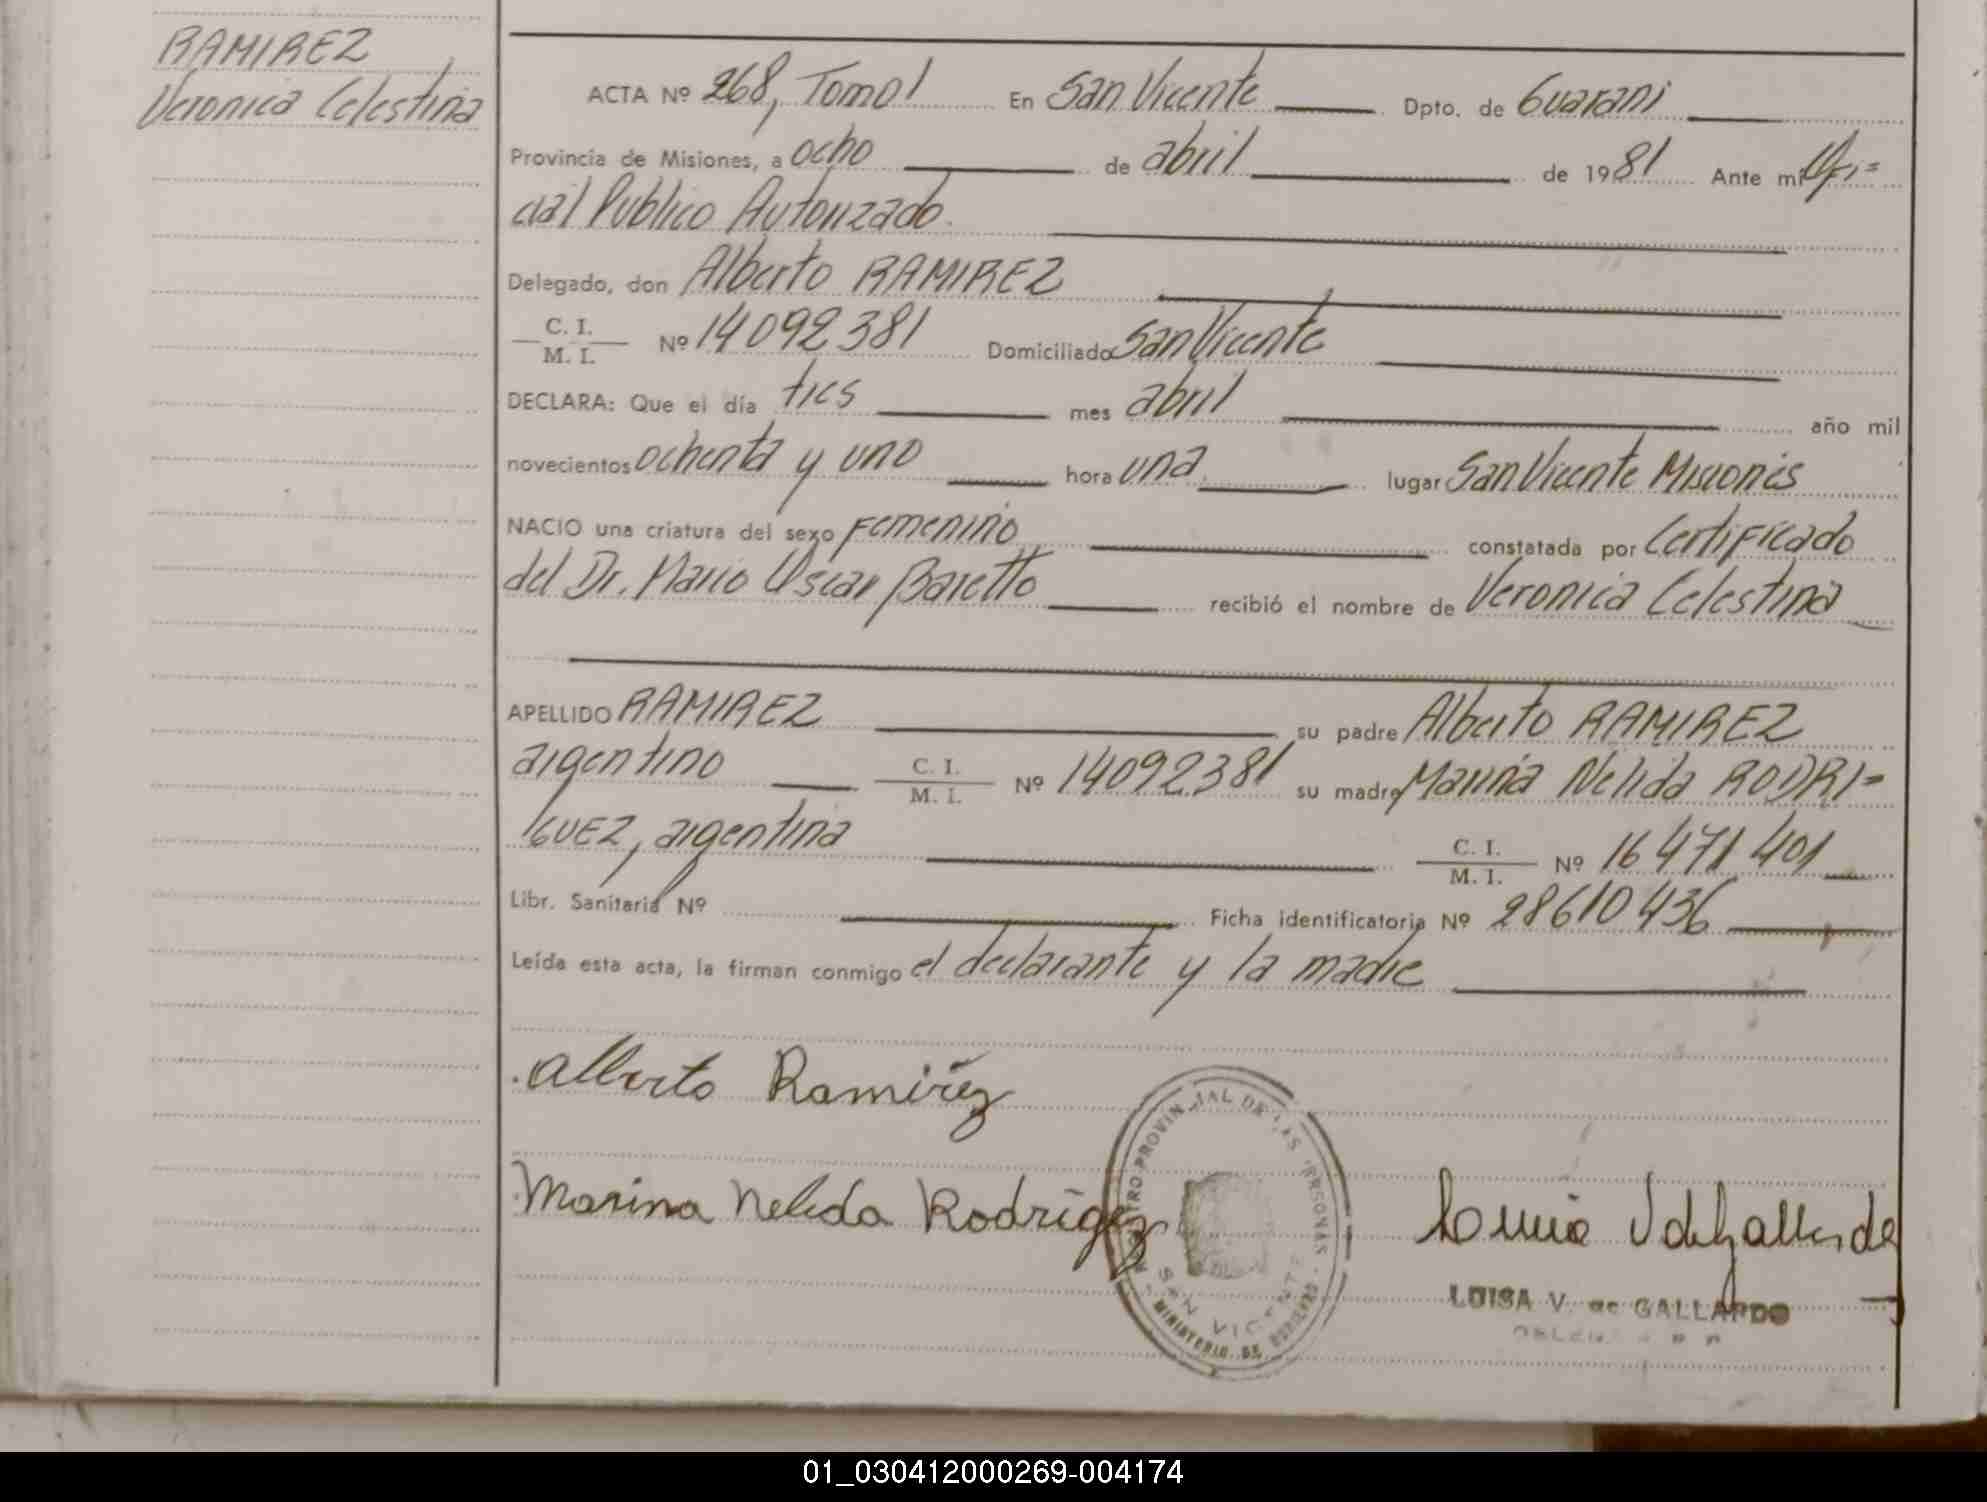 RAMIREZ
Veronica Celestina
ACTA Nº 268, Tomo I En San Vicente Dpto. de Guarani
Provincia de Misiones, a ocho de abril de 1981 Ante mí Ofi=
cial Publico Autorizado.
Delegado, don Alberto RAMIREZ
C. I.
M. I. Nº 14092381 Domiciliado San Vicente
DECLARA: Que el día tres mes abril año mil
novecientos ochenta y uno hora una lugar San Vicente Misiones
NACIO una criatura del sexo Femenino constatada por Certificado
del Dr. Mario Oscar Baretto recibió el nombre de Veronica Celestina
APELLIDO RAMIREZ su padre Alberto RAMIREZ
argentino C. I. M. I. Nº 14092381 su madre Marina Nelida RODRI=
GUEZ, argentina C. I. M. I. Nº 16471401
Libr. Sanitaria Nº Ficha identificatoria Nº 28610436
Leída esta acta, la firman conmigo el declarante y la madre
Alberto Ramirez
Marina Nelida Rodrigez
REGISTRO PROVINCIAL DE LAS PERSONAS
SAN VICENTE
MINISTERIO DE GOBIERNO
Luisa V de Gallardo
LUISA V. de GALLARDO
01_030412000269-004174